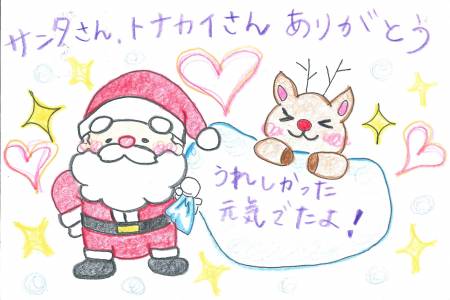 サンタさん、トナカイさん ありがとう
うれしかった
元気でたよ!